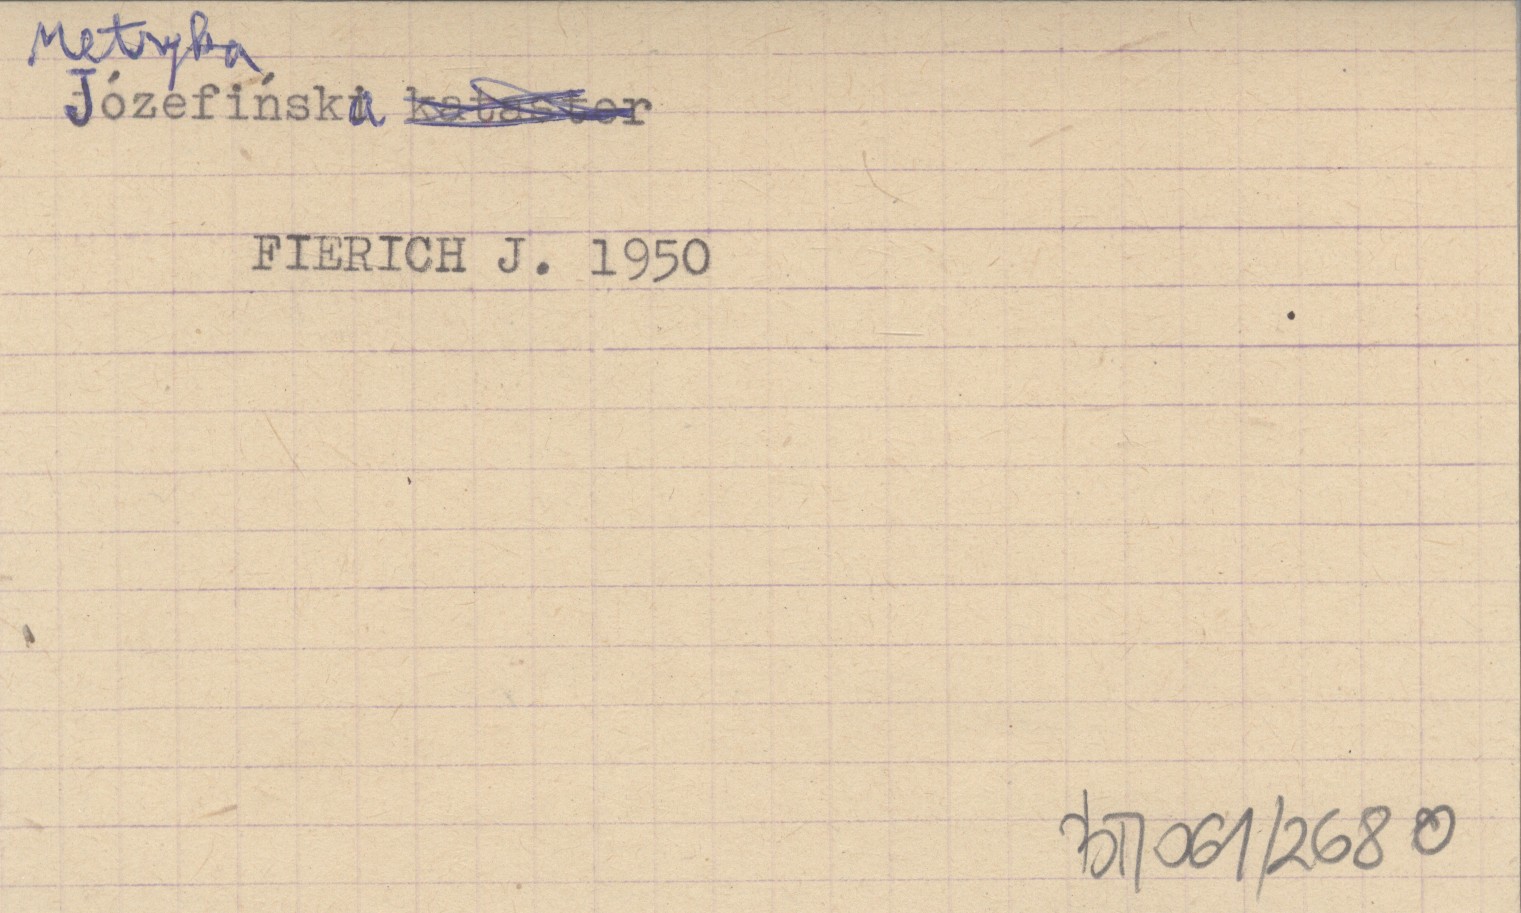 Metryka
Józefińska kataster
FIERICH J. 1950
061/268